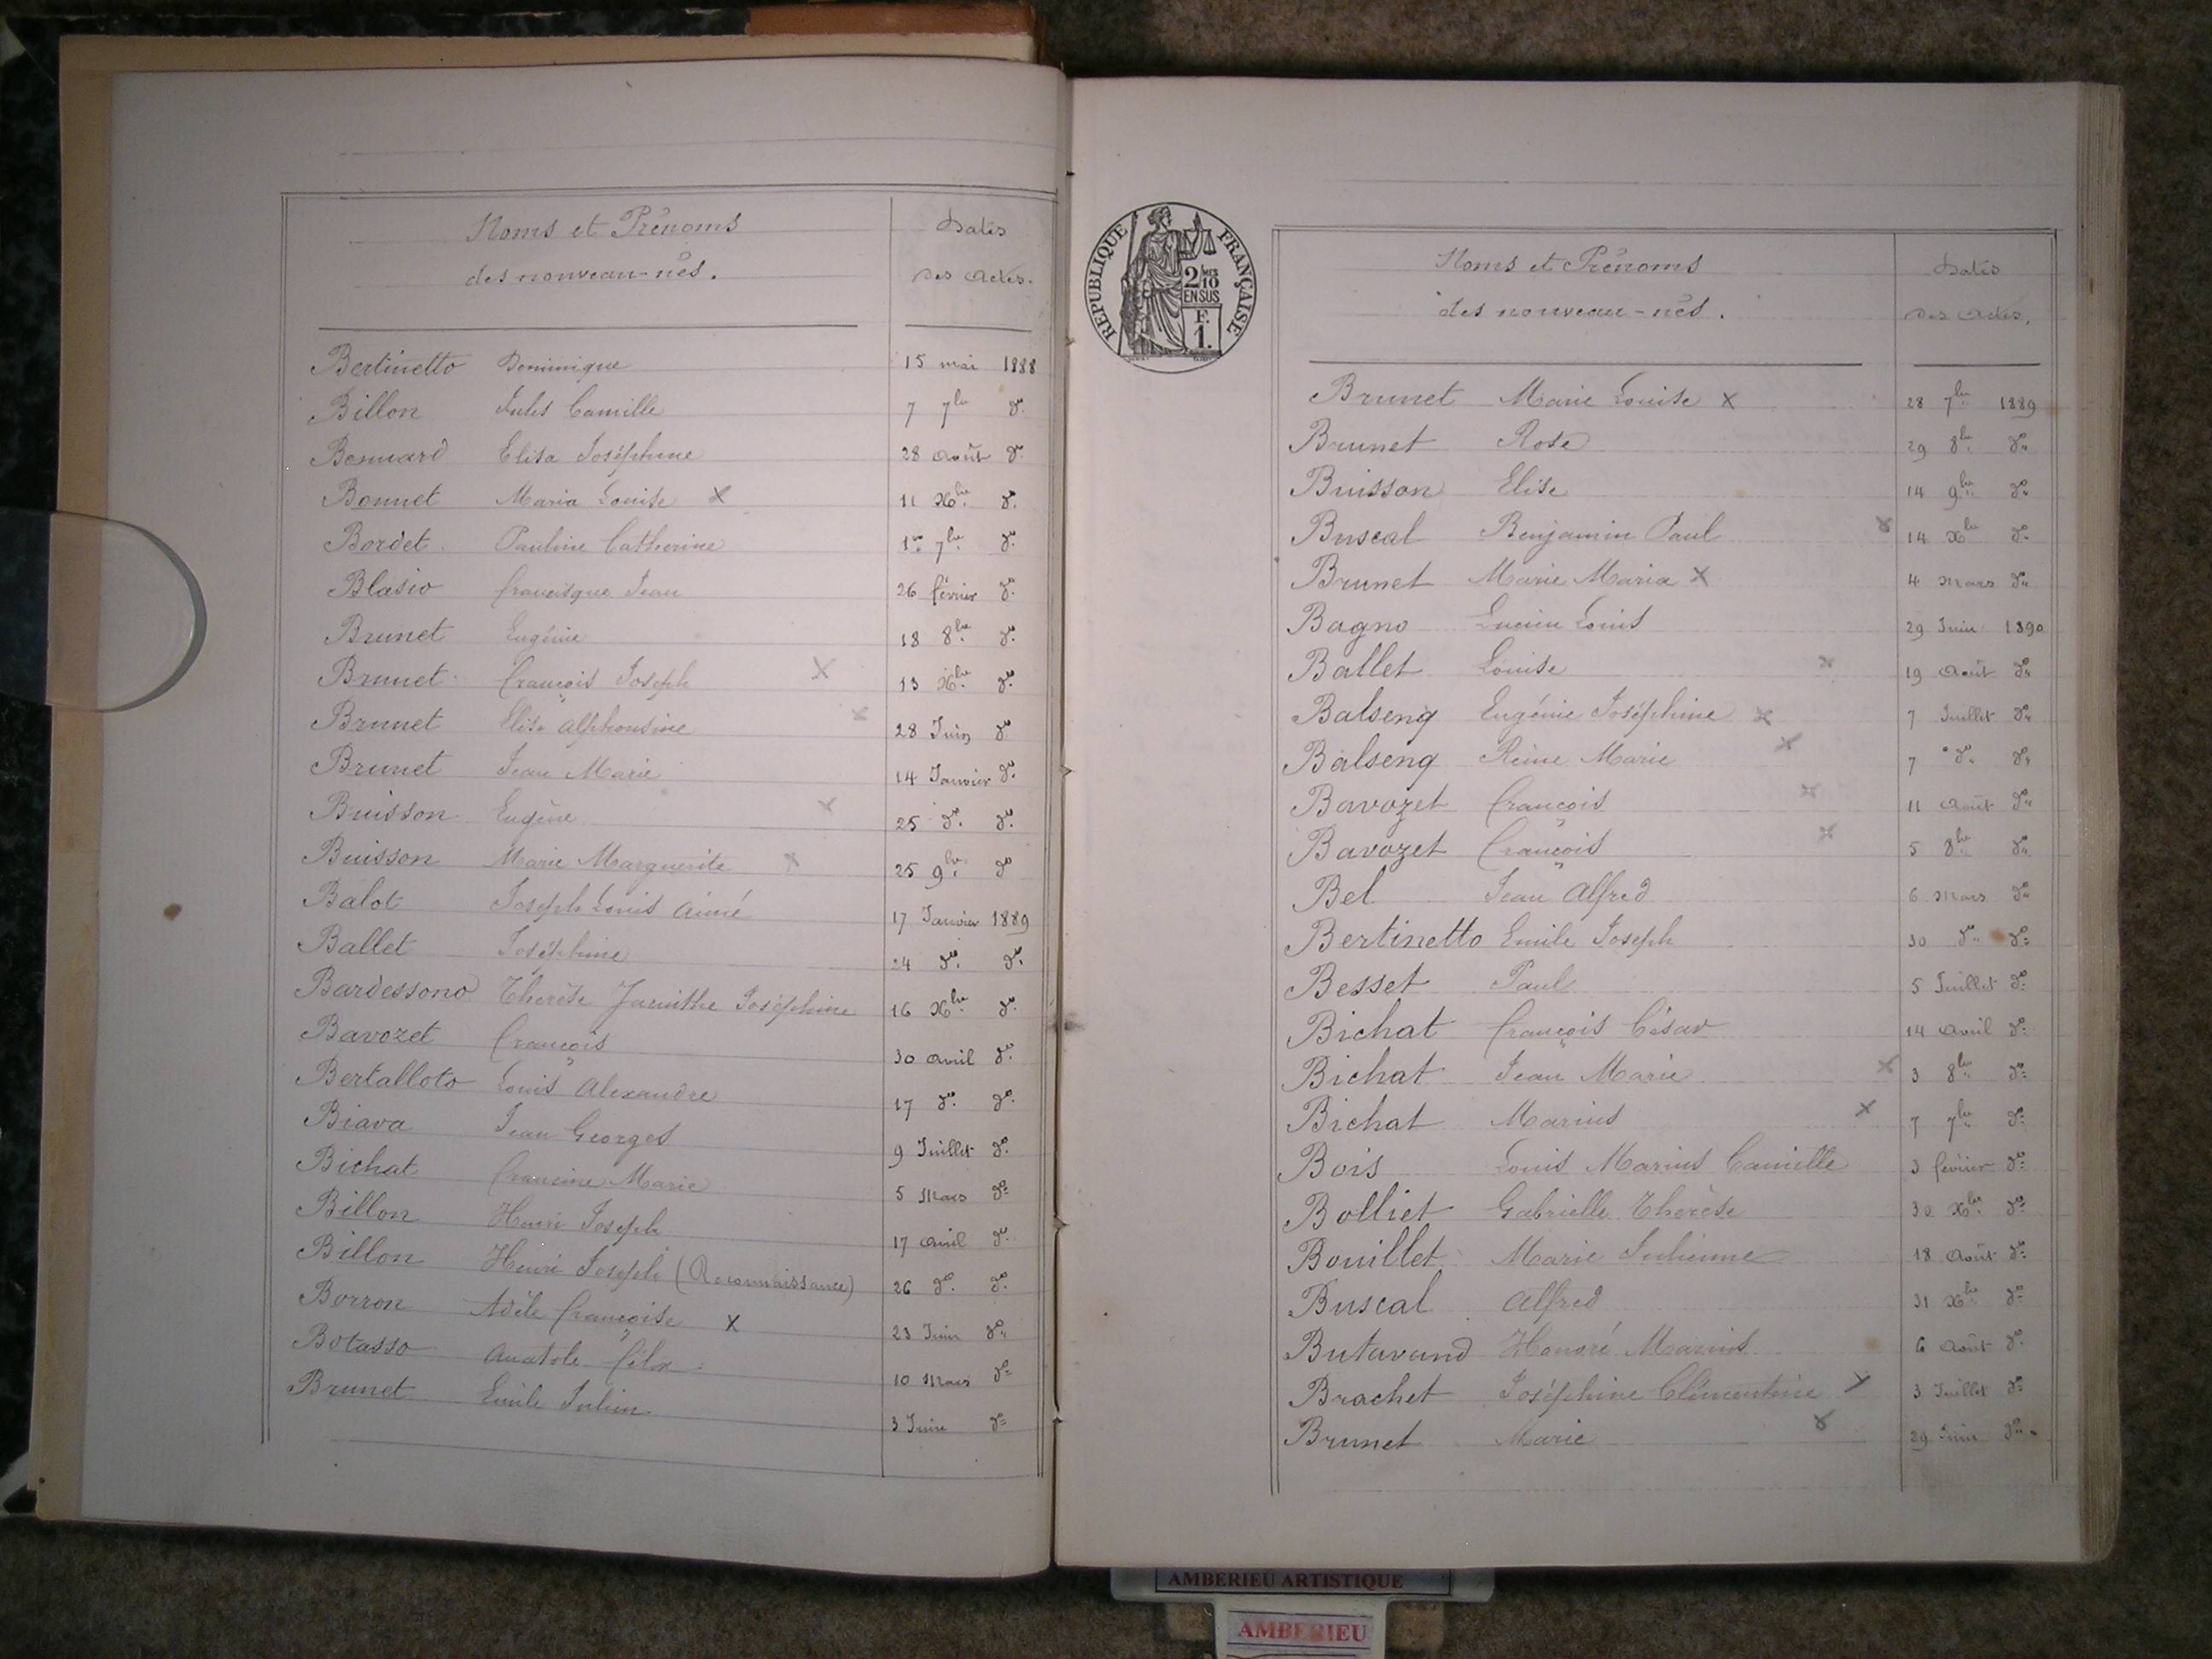 Noms et Prénoms
des nouveau-nés.
Dates
des Actes.
Bertinetto Dominique 15 mai 1888
Billon Jules Camille 7 7bre do
Bonnard Elisa Joséphine 28 Août do
Bonnet Maria Louise x 11 Xbre do
Bordet Pauline Catherine 1er 7bre do
Blasio Francisque Jean 26 février do
Brunet Eugénie 18 8bre do
Brunet François Joseph x 13 Xbre do
Brunet Elise Alphonsine x 28 Juin do
Brunet Jean Marie 14 Janvier do
Buisson Eugène x 25 do do
Buisson Marie Marguerite x 25 9bre do
Balot Joseph Louis Aimé 17 Janvier 1889
Ballet Joséphine 24 do do
Bardessono Thérèse Jacinthe Joséphine 16 Xbre do
Bavozet François 30 Avril do
Bertalloto Louis Alexandre 17 do do
Biava Jean Georges 9 Juillet do
Bichat Francine Marie 5 Mars do
Billon Henri Joseph 17 Avril do
Billon Henri Joseph (Reconnaissance) 26 do do
Borron Adèle Françoise x 23 Juin do
Botasso Anatole Félix 10 Mars do
Brunet Emile Julien 3 Juin do
REPUBLIQUE FRANÇAISE
2/10 MES
EN SUS
F.
1.
Noms et Prénoms
des nouveau-nés.
Dates
des Actes.
Brunet Marie Louise x 28 7bre 1889
Brunet Rose 29 8bre do
Buisson Elise 14 9bre do
Buscal Benjamin Paul x 14 Xbre do
Brunet Marie Maria x 4 Mars do
Bagno Lucien Louis 29 Juin 1890
Ballet Louise x 19 Août do
Balseng Eugénie Joséphine x 7 Juillet do
Balseng Reine Marie x 7 do do
Bavozet François x 11 Août do
Bavozet François x 5 8bre do
Bel Jean Alfred 6 Mars do
Bertinetto Emile Joseph 30 do do
Besset Paul 5 Juillet do
Bichat François César 14 Avril do
Bichat Jean Marie x 3 8bre do
Bichat Marius x 7 7bre do
Bois Louis Marius Camille 3 février do
Bolliet Gabrielle Thérèse 30 Xbre do
Bouillet Marie Julienne 18 Août do
Buscal Alfred 31 Xbre do
Butavand Honoré Marius 6 Août do
Brachet Joséphine Clémentine x 3 Juillet do
Brunet Marie x 29 Juin do
AMBERIEU ARTISTIQUE
AMBERIEU